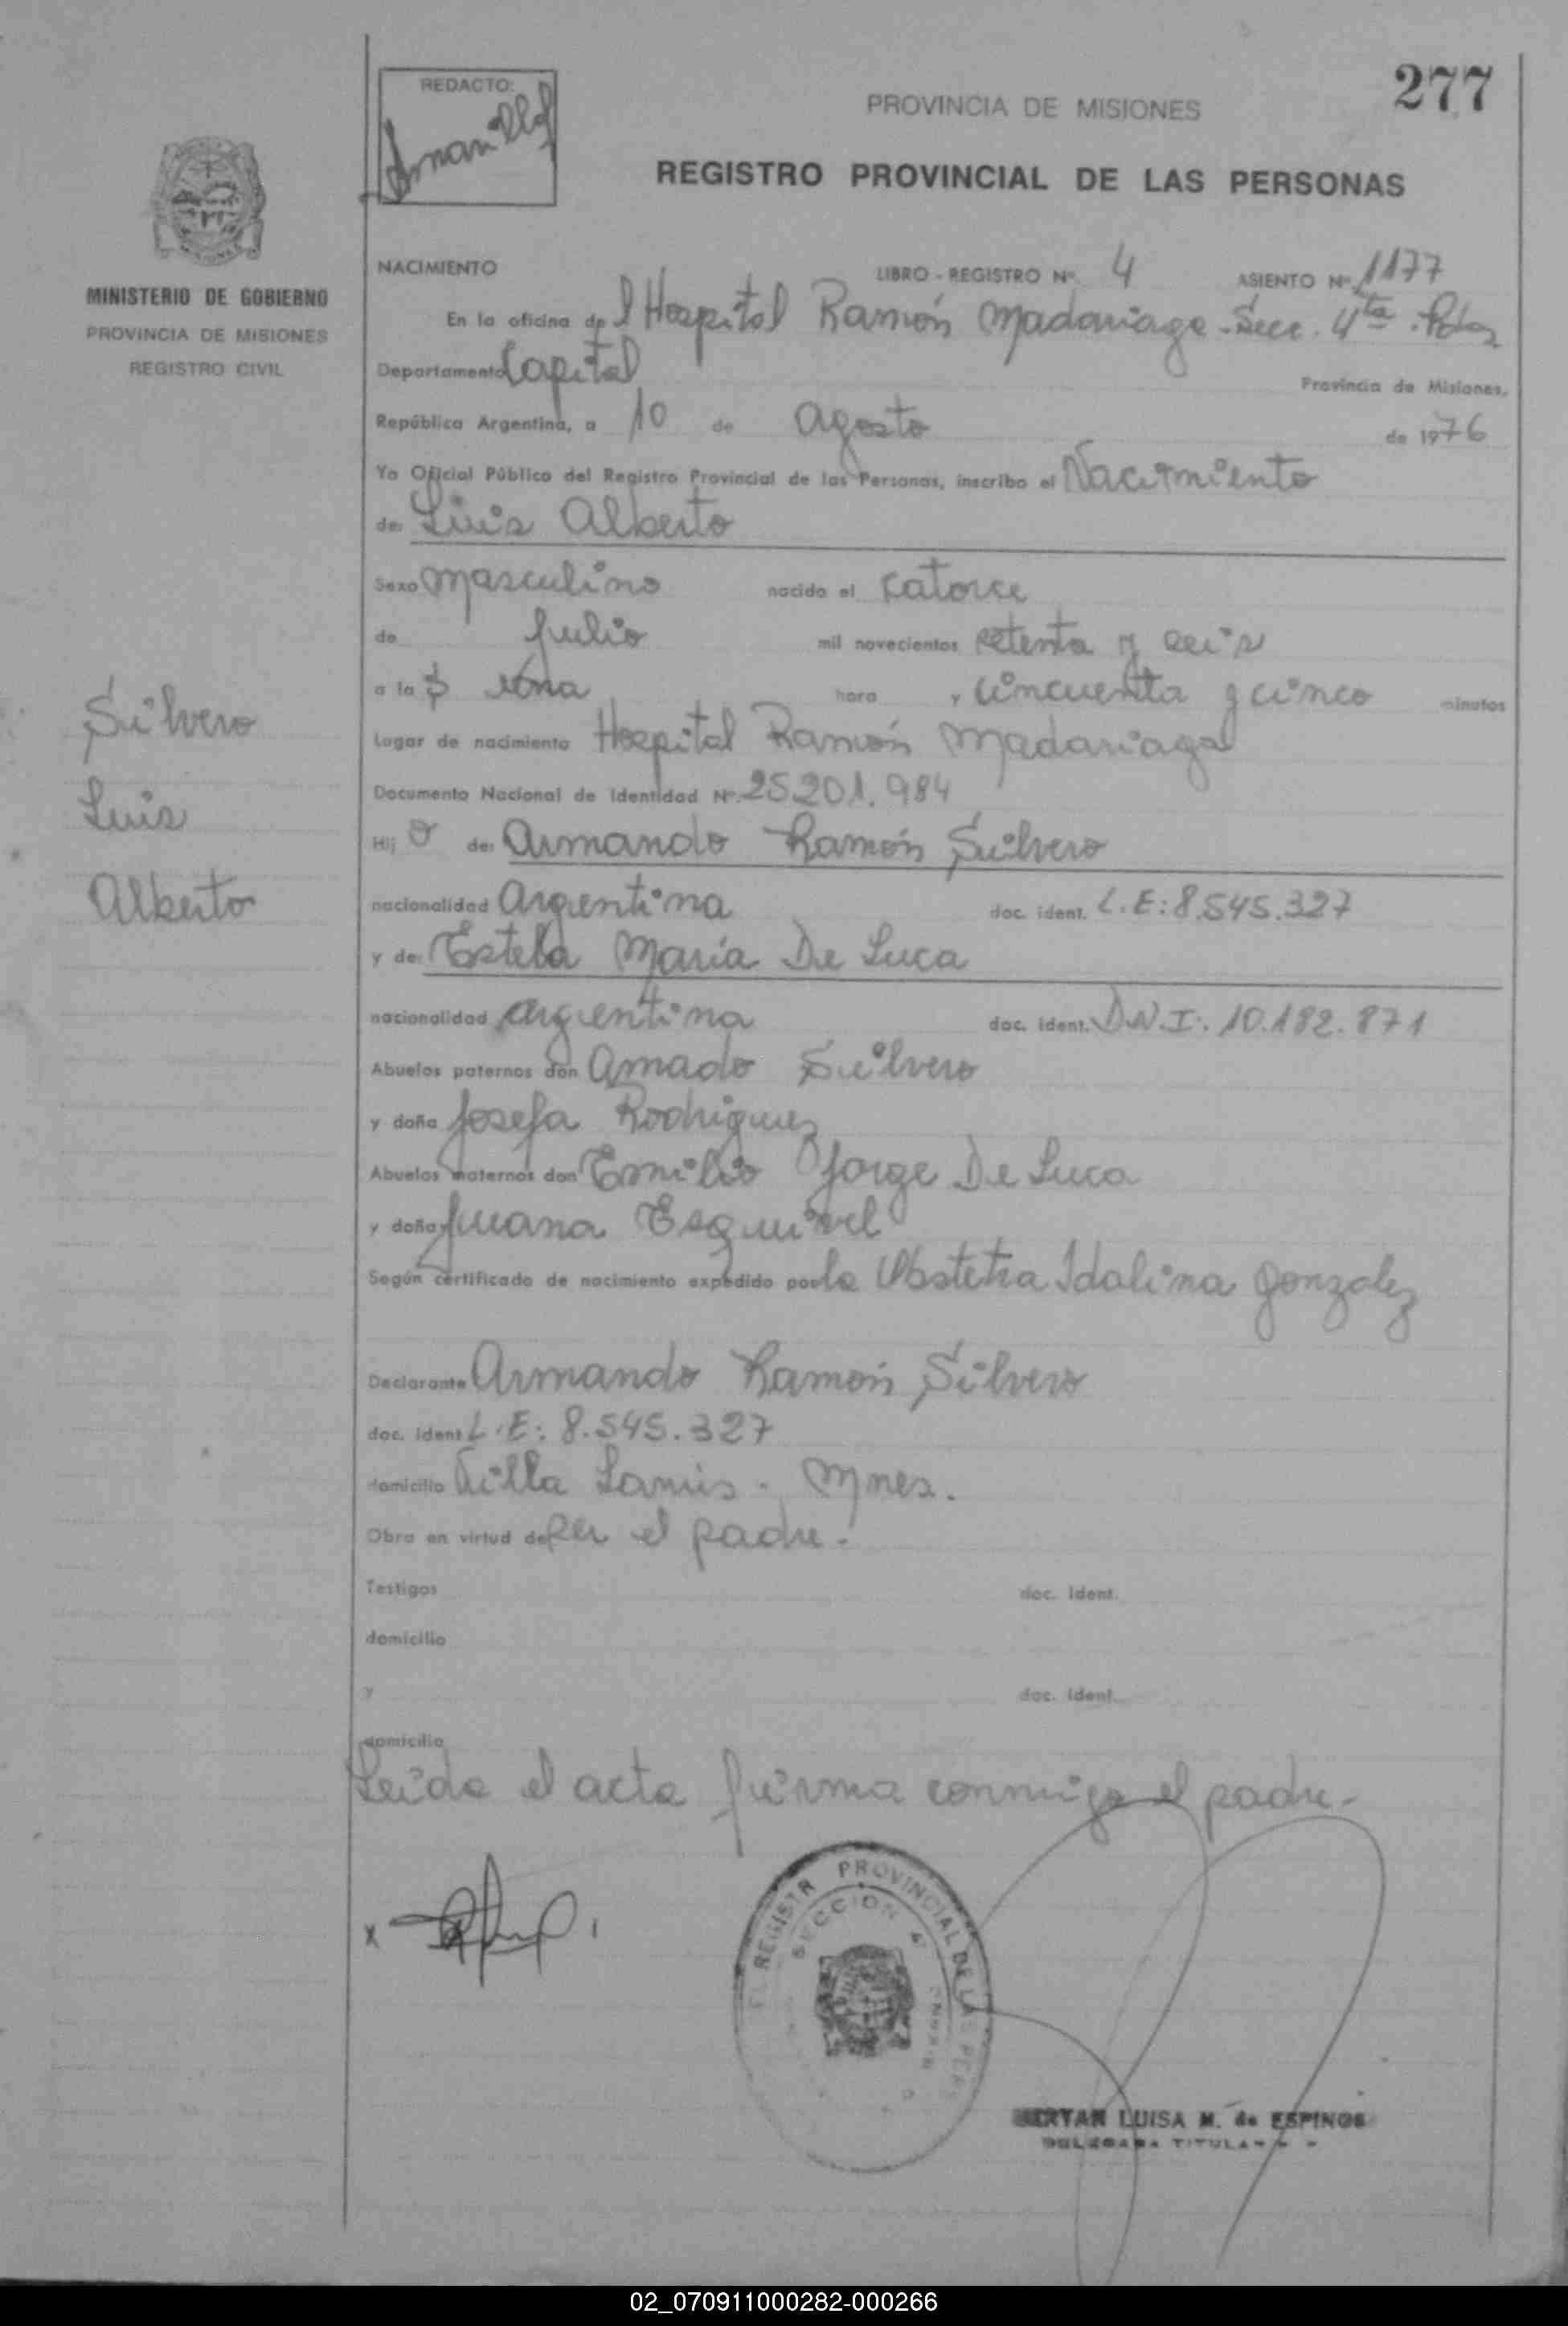 277
REDACTO:
PROVINCIA DE MISIONES
REGISTRO PROVINCIAL DE LAS PERSONAS
MINISTERIO DE GOBIERNO
PROVINCIA DE MISIONES
REGISTRO CIVIL
Silvero
Luis
Alberto
NACIMIENTO LIBRO - REGISTRO Nº 4 ASIENTO Nº 1177
En la oficina del Hospital Ramón Madariaga - Secc. 4ta. Pdas
Departamento Capital Provincia de Misiones,
República Argentina, a 10 de Agosto de 1976
Yo Oficial Público del Registro Provincial de las Personas, inscribo el Nacimiento
de: Luis Alberto
Sexo Masculino nacido el catorce
de Julio mil novecientos setenta y seis
a la una hora y cincuenta y cinco minutos
Lugar de nacimiento Hospital Ramón Madariaga
Documento Nacional de Identidad Nº 25.201.984
Hij o de: Armando Ramón Silvero
nacionalidad Argentina doc. ident. L.E: 8.545.327
y de: Estela María De Luca
nacionalidad argentina doc. ident. D.N.I. 10.182.871
Abuelos paternos don Amado Silvero
y doña Josefa Rodriguez
Abuelos maternos don Emilio Jorge De Luca
y doña Juana Esquivel
Según certificado de nacimiento expedido por la Obstetra Idalina Gonzalez
Declarante Armando Ramón Silvero
doc. ident. L.E: 8.545.327
domicilio Villa Lanús - Mnes.
Obra en virtud de ser el padre.
Testigos doc. ident.
domicilio
y doc. ident.
domicilio
Leída el acta firma conmigo el padre-
x
REGISTR PROVINCIAL DE LAS PERS
SECCION 4ª
LUISA M. de ESPINOS
DELEGADA TITULAR
02_070911000282-000266